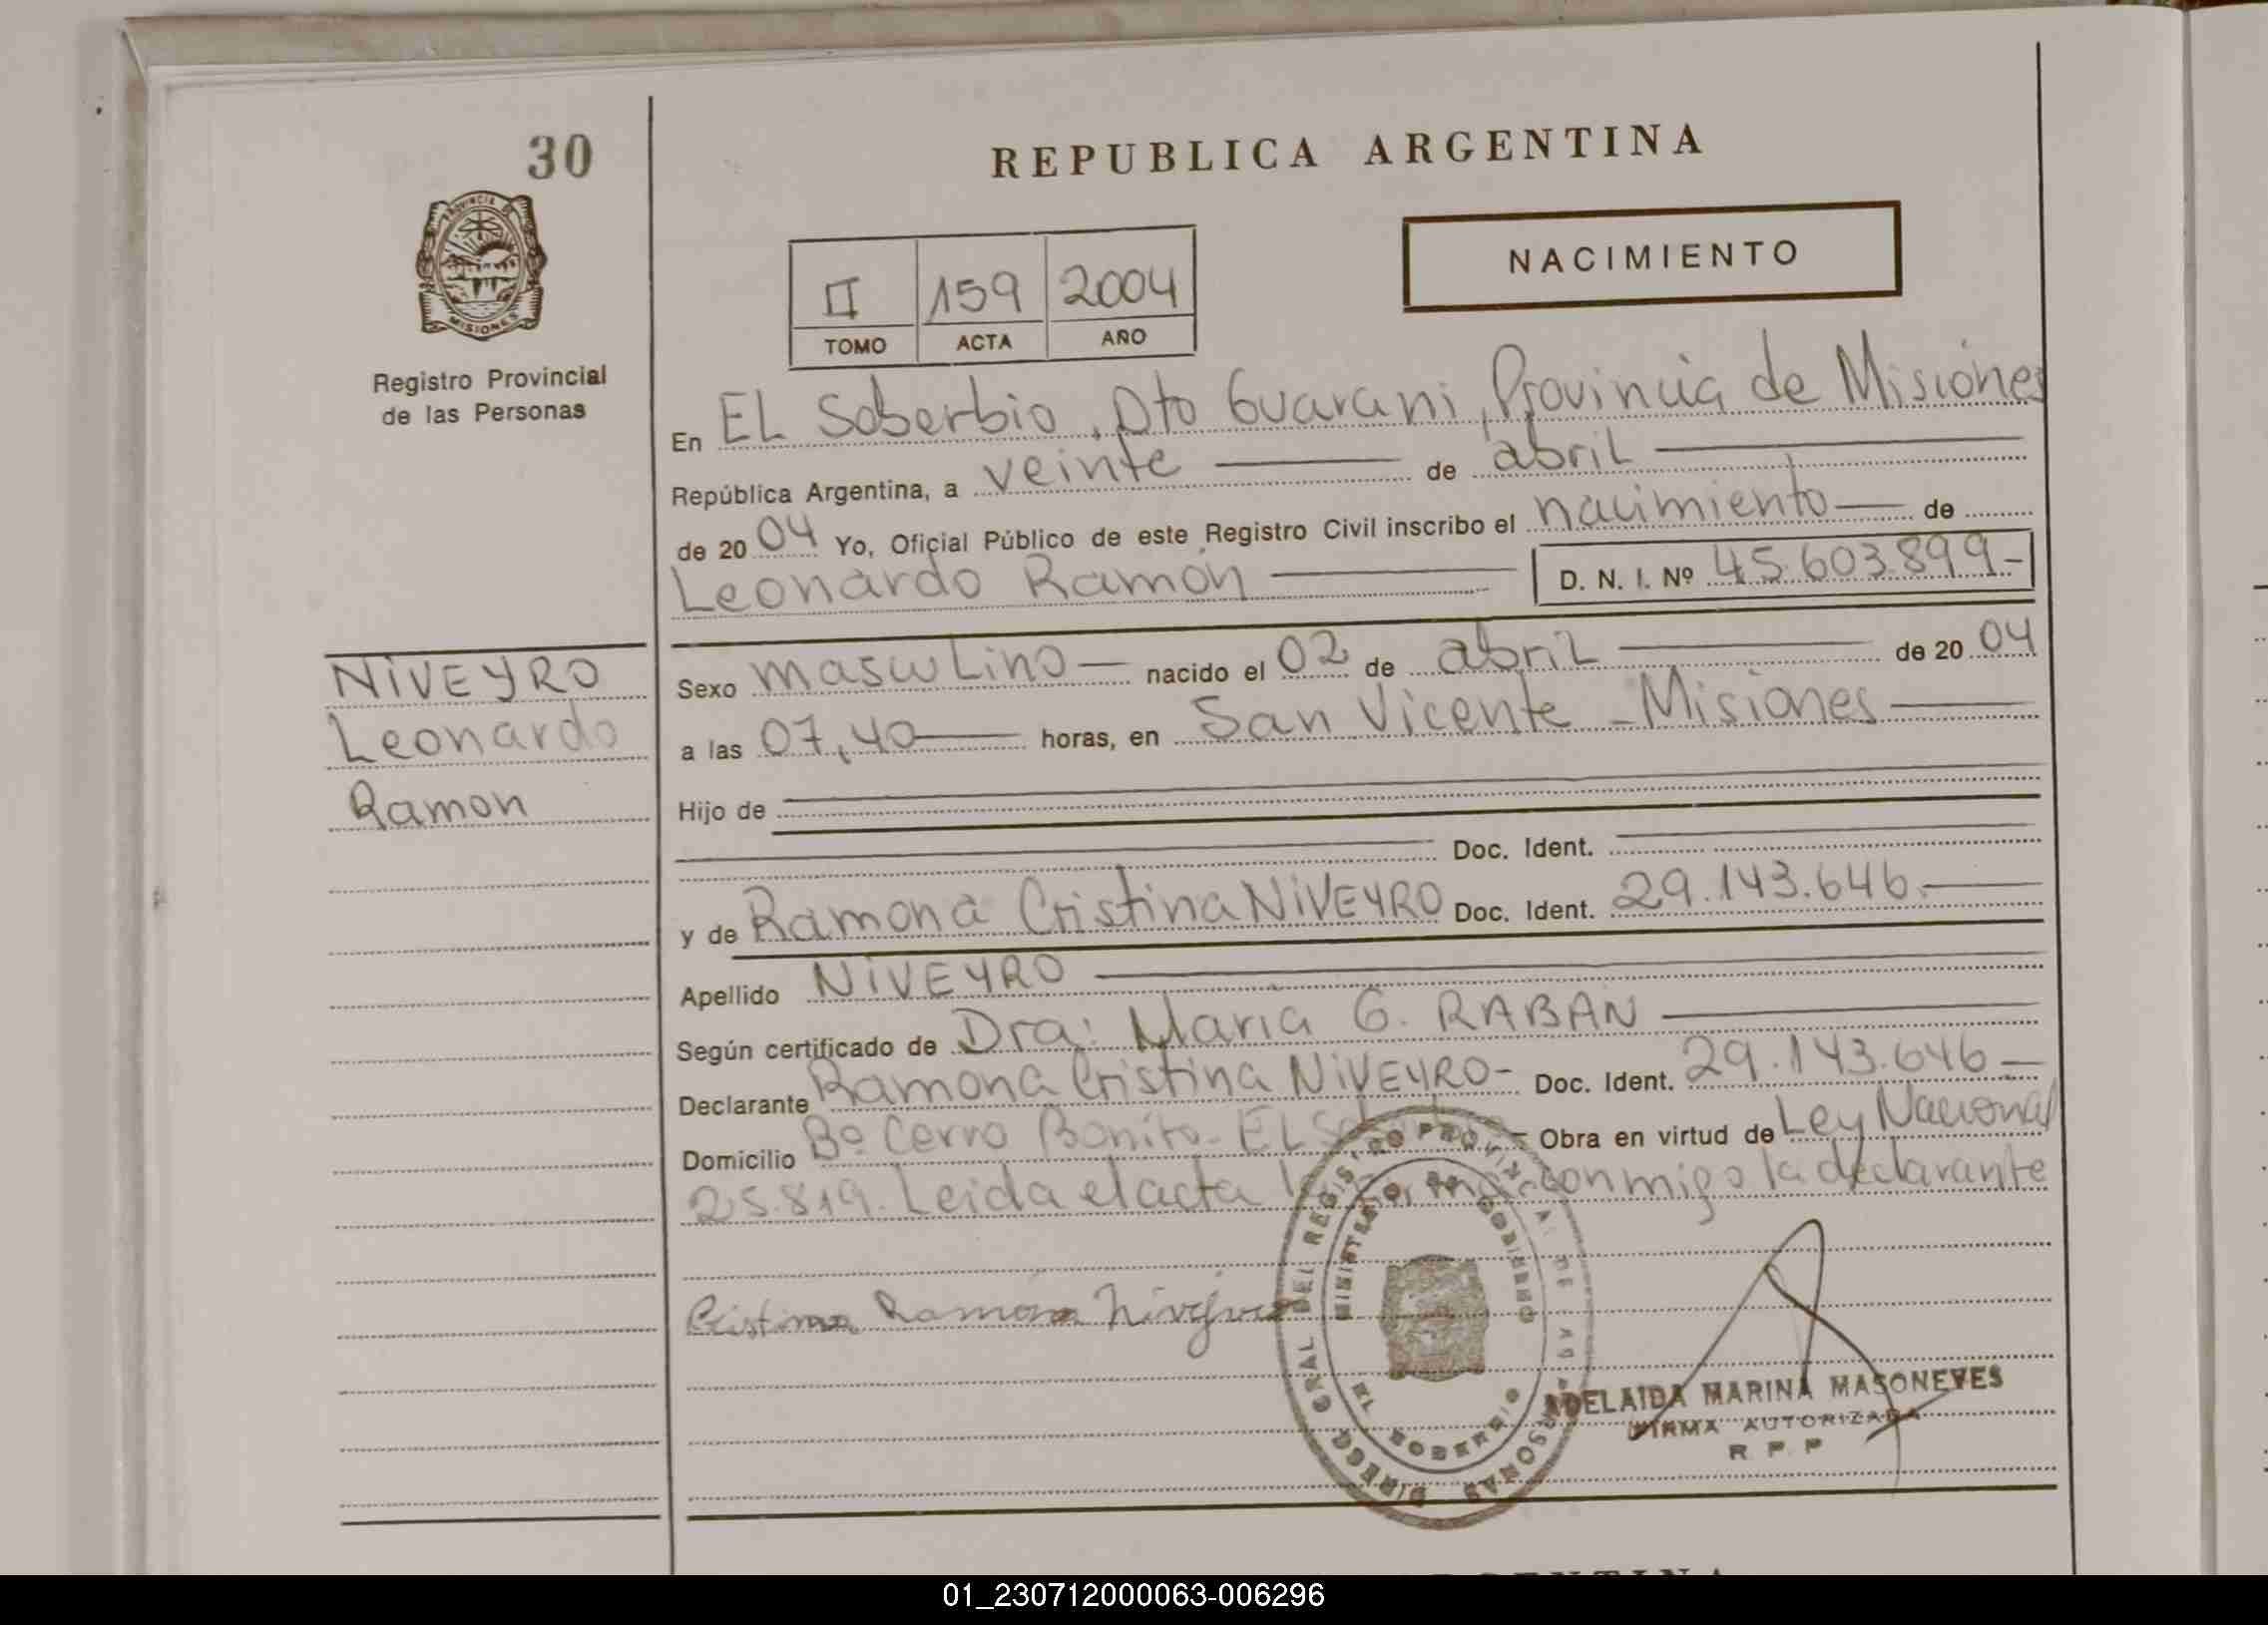 30
REPUBLICA ARGENTINA
PROVINCIA DE
MISIONES
Registro Provincial
de las Personas
NACIMIENTO
II 159 2004
TOMO ACTA AÑO
En EL Soberbio, Dto Guarani, Provincia de Misiones
República Argentina, a veinte de abril
de 20 04 Yo, Oficial Público de este Registro Civil inscribo el nacimiento de
Leonardo Ramón D. N. I. Nº 45.603.899-
NiVEYRO
Leonardo
Ramon
Sexo masculino nacido el 02 de abril de 20 04
a las 07,40 horas, en San Vicente - Misiones
Hijo de
Doc. Ident.
y de Ramona Cristina NiVEYRO Doc. Ident. 29.143.646.
Apellido NiVEYRO
Según certificado de Dra: Maria G. RABAN
Declarante Ramona Cristina NiVEYRO- Doc. Ident. 29.143.646
Domicilio Bº Cerro Bonito - EL Obra en virtud de Ley Nacional
25.819. Leida el acta conmigo la declarante
Cristina Ramona Niveyro
DIRECC. GRAL. DEL REGISTRO PROVINCIAL DE LAS PERSONAS
MINISTERIO DE GOBIERNO
EL SOBERBIO
ADELAIDA MARINA MASONEVES
FIRMA AUTORIZADA
R P P
01_230712000063-006296